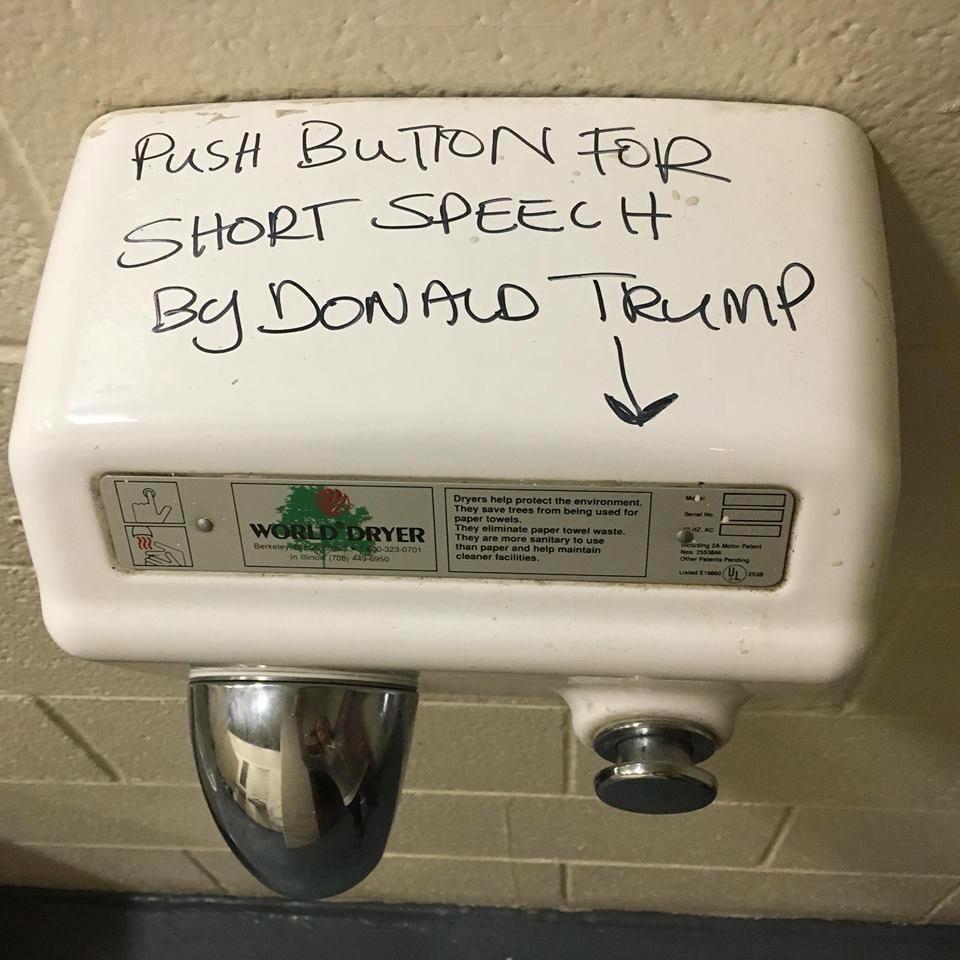 PUSH BUTTON FOR
SHORT SPEECH
BY DONALD TRUMP
WORLD DRYER
Berkeley
In Illinois (708) 449-6950
Dryers help protect the environment.
They save trees from being used for
paper towels.
They eliminate paper towel waste.
They are more sanitary to use
than paper and help maintain
cleaner facilities.
Serial No.
HZ. AC
Including 2A Motor Patent
Nos. 2553846
Other Patents Pending
Listed E19860 UL 253B